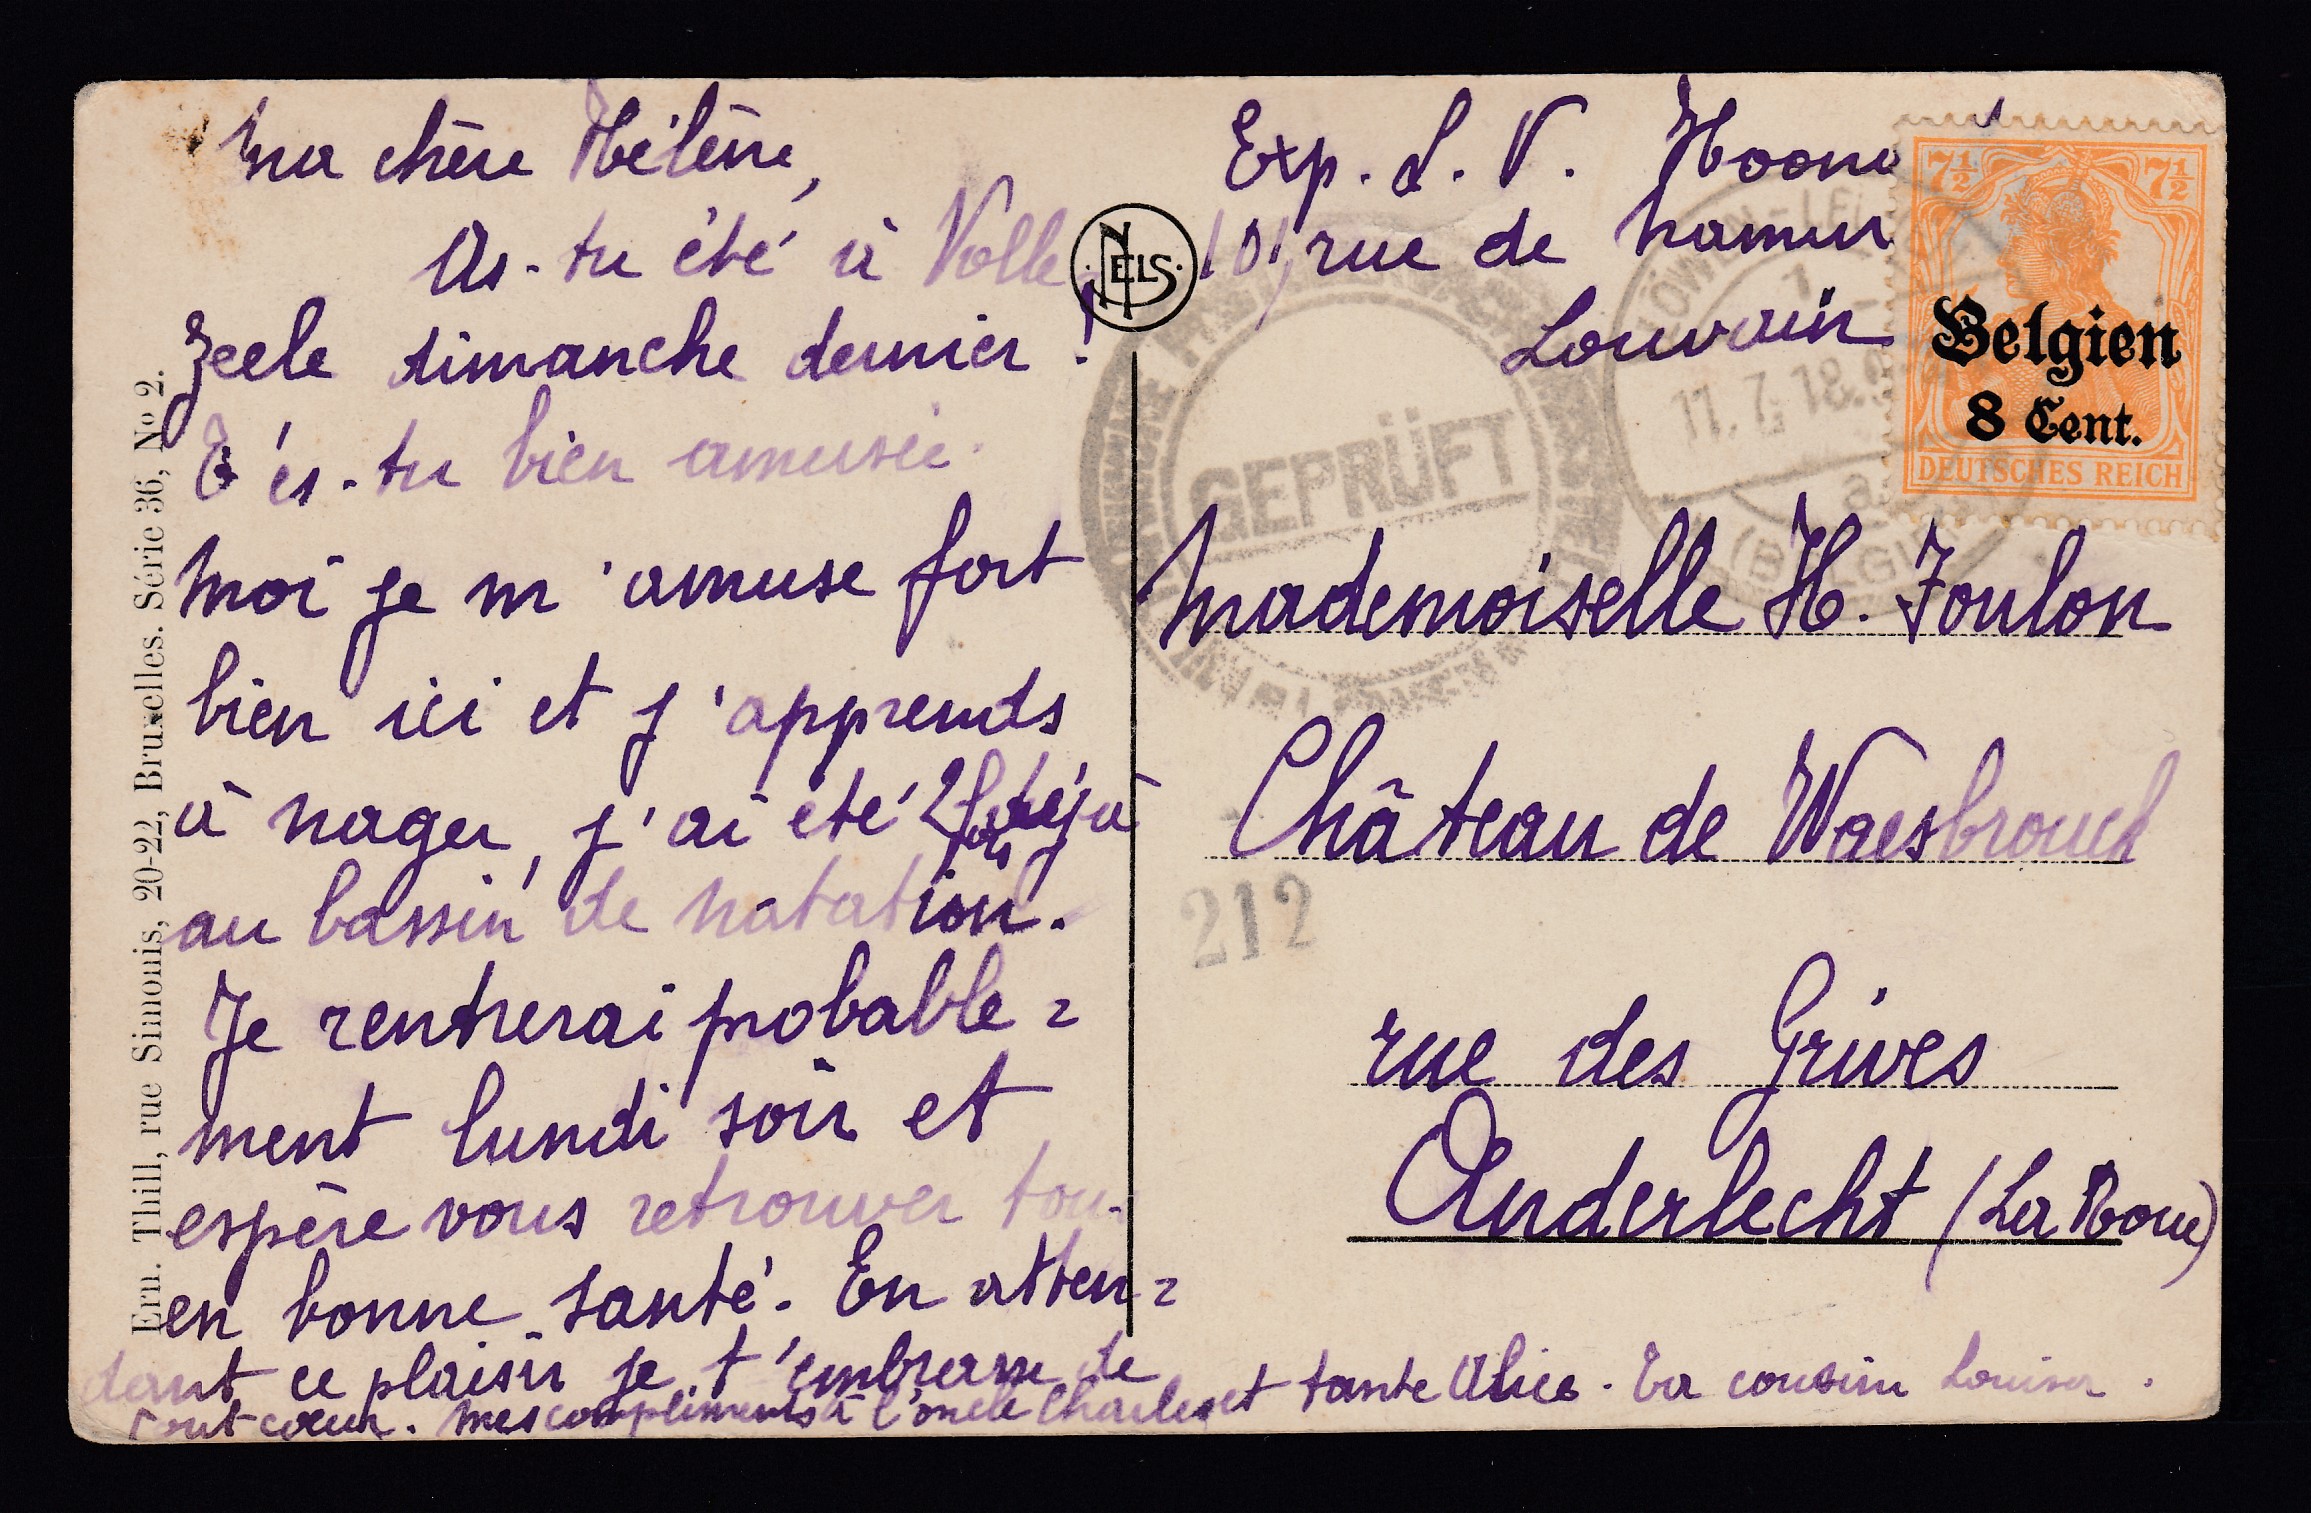 Ma chère Hélène,
As-tu été à Volle
Zeele dimanche dernier!
T'es-tu bien amusée.
Moi je m'amuse fort
bien ici et j'apprends
à nager, j'ai été 2 fois déjà
au bassin de natation.
Je rentrerai probable=
ment lundi soir et
espère vous retrouver tous
en bonne santé. En atten=
dant ce plaisir je t'embrasse de
tout cœur. Mes compliments à l'oncle Charles et tante Alice. Ta cousine Louisa.
Ern. Thill, rue Simonis, 20-22, Bruxelles. Série 36, No 2.
NELS
Exp. L. V. Hoon
101, rue de Namur
Louvain
7½ 7½
Belgien
8 Cent.
DEUTSCHES REICH
LÖWEN
11.7.18.
a
(BELGIEN)
GEPRÜFT
Mademoiselle H. Foulon
Château de Waesbrouck
212
rue des Grives
Anderlecht (La Roue)